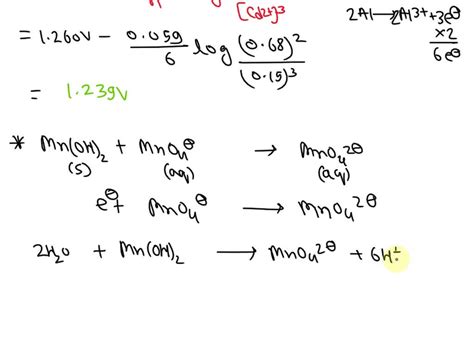 [Cd2+]3
2Al→2Al3+ +3e⊖
×2
6e⊖
= 1.260V - 0.059/6 log (0.68)²/(0.15)³
= 1.239V
* Mn(OH)₂ + MnO₄⊖ → MnO₄2⊖
(s) (aq) (aq)
e⊖+ MnO₄⊖ → MnO₄2⊖
2H₂O + Mn(OH)₂ → MnO₄2⊖ + 6H+